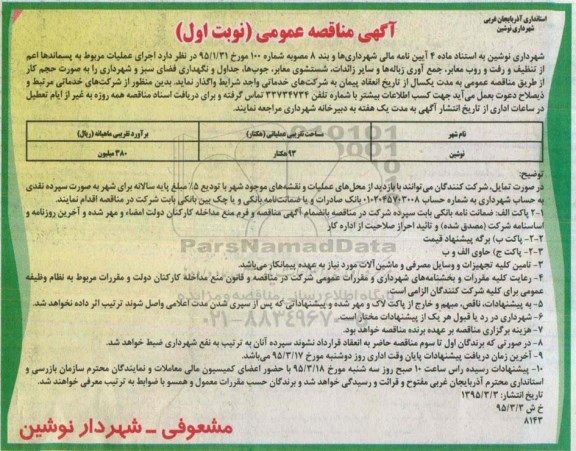 استانداری آذربایجان غربی
شهرداری نوشین
آگهی مناقصه عمومی (نوبت اول)
شهرداری نوشین به استناد ماده ۴ آیین نامه مالی شهرداری‌ها و بند ۸ مصوبه شماره ۱۰۰ مورخ ۹۵/۱/۳۱ در نظر دارد اجرای عملیات مربوط به پسماندها اعم
از تنظیف و رفت و روب معابر، جمع آوری زباله‌ها و سایر زائدات، شستشوی معابر، جوب‌ها، جداول و نگهداری فضای سبز و شهرداری را به صورت حجم کار
از طریق مناقصه عمومی به مدت یکسال از تاریخ انعقاد پیمان به شرکت‌های خدماتی واجد شرایط واگذار نماید. بدین منظور از شرکت‌های خدماتی مرتبط و
ذیصلاح دعوت بعمل می‌آید جهت کسب اطلاعات بیشتر با شماره تلفن ۳۳۷۳۴۷۳۴ تماس گرفته و برای دریافت اسناد مناقصه همه روزه به غیر از ایام تعطیل
در ساعات اداری از تاریخ انتشار آگهی به مدت یک هفته به دبیرخانه شهرداری مراجعه نمایند.
نام شهر مساحت تقریبی عملیاتی (هکتار) برآورد تقریبی ماهیانه (ریال)
نوشین ۹۳ هکتار ۳۸۰ میلیون
توضیح:
در صورت تمایل، شرکت کنندگان می‌توانند با بازدید از محل‌های عملیات و نقشه‌های موجود شهر با تودیع ۵٪ مبلغ پایه سالانه برای شهر به صورت سپرده نقدی
به حساب شهرداری به شماره حساب ۰۱۰۲۰۴۵۷۰۳۰۰۸ بانک صادرات و یا ضمانت‌نامه بانکی و یا چک بین بانکی بابت شرکت در مناقصه اقدام نمایند.
۱-۲ پاکت الف: ضمانت نامه بانکی بابت سپرده شرکت در مناقصه بانضمام آگهی مناقصه و فرم منع مداخله کارکنان دولت امضاء و مهر شده و آخرین روزنامه و
اساسنامه شرکت (مصدق شده) و تائید احراز صلاحیت از اداره کار
۲-۲- پاکت ب) برگه پیشنهاد قیمت
۳-۲- پاکت ج) حاوی الف و ب
۳- تامین کلیه تجهیزات و وسایل مصرفی و ماشین‌آلات مورد نیاز به عهده پیمانکار می‌باشد.
۴- رعایت کلیه مقررات و بخشنامه‌های شهرداری و مقررات عمومی شرکت در مناقصه و قانون منع مداخله کارکنان دولت و مقررات مربوط به نظام وظیفه
عمومی برای کلیه شرکت‌کنندگان الزامی است.
۵- به پیشنهادات، ناقص، مبهم و خارج از پاکت لاک و مهر شده و پیشنهاداتی که پس از سپری شدن مدت اعلامی واصل شوند ترتیب اثر داده نخواهد شد.
۶- شهرداری در رد یا قبول هر یک از پیشنهادات مختار است.
۷- هزینه برگزاری مناقصه بر عهده برنده مناقصه خواهد بود.
۸- در صورتی که برندگان اول تا سوم مناقصه حاضر به انعقاد قرارداد نشوند سپرده آنان به ترتیب به نفع شهرداری ضبط خواهد شد.
۹- آخرین زمان دریافت پیشنهادات پایان وقت اداری روز دوشنبه مورخ ۹۵/۳/۱۷ می‌باشد.
۱۰- پیشنهادات رسیده راس ساعت ۱۰ صبح روز سه شنبه مورخ ۹۵/۳/۱۸ با حضور اعضای کمیسیون عالی معاملات و نمایندگان محترم سازمان بازرسی و
استانداری محترم آذربایجان غربی مفتوح و قرائت و رسیدگی خواهد شد و برندگان حسب مقررات معمول و همسو با ضوابط به ترتیب معرفی خواهند شد.
تاریخ انتشار: ۱۳۹۵/۳/۳
خ ش ۹۵/۳/۳
۸۱۴۳
مشعوفی - شهردار نوشین
ParsNamadData
۰۲۱-۸۸۳۴۹۶۷۰